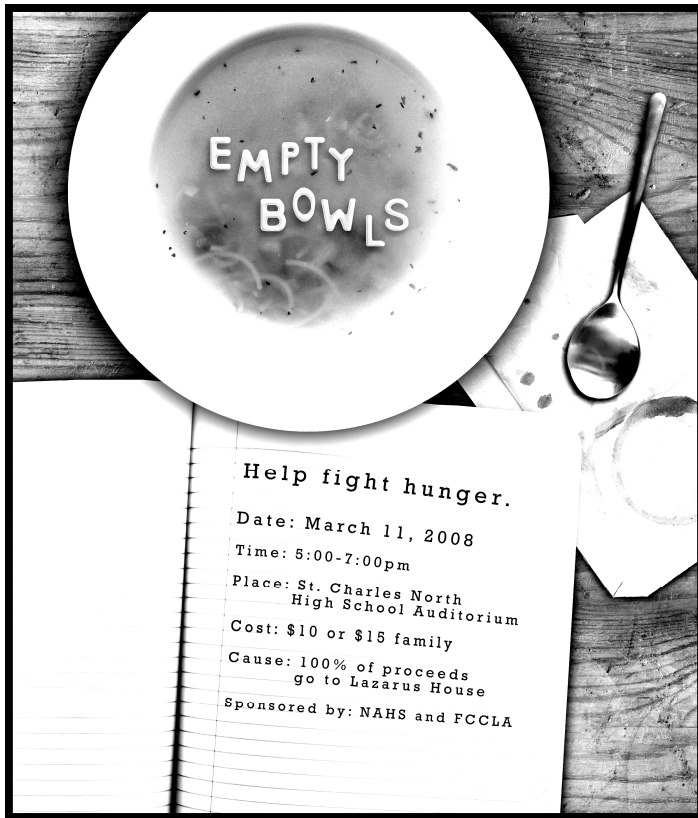 EMPTY
BOWLS
Help fight hunger.
Date: March 11, 2008
Time: 5:00-7:00pm
Place: St. Charles North
High School Auditorium
Cost: $10 or $15 family
Cause: 100% of proceeds
go to Lazarus House
Sponsored by: NAHS and FCCLA